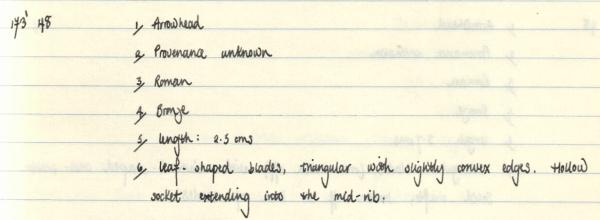 173' 48 1, Arrowhead
2, Provenance unknown
3, Roman
4, Bronze
5, length: 2.5 cms
6, Leaf-shaped blades, triangular with slightly convex edges. Hollow
socket extending into the mid-rib.